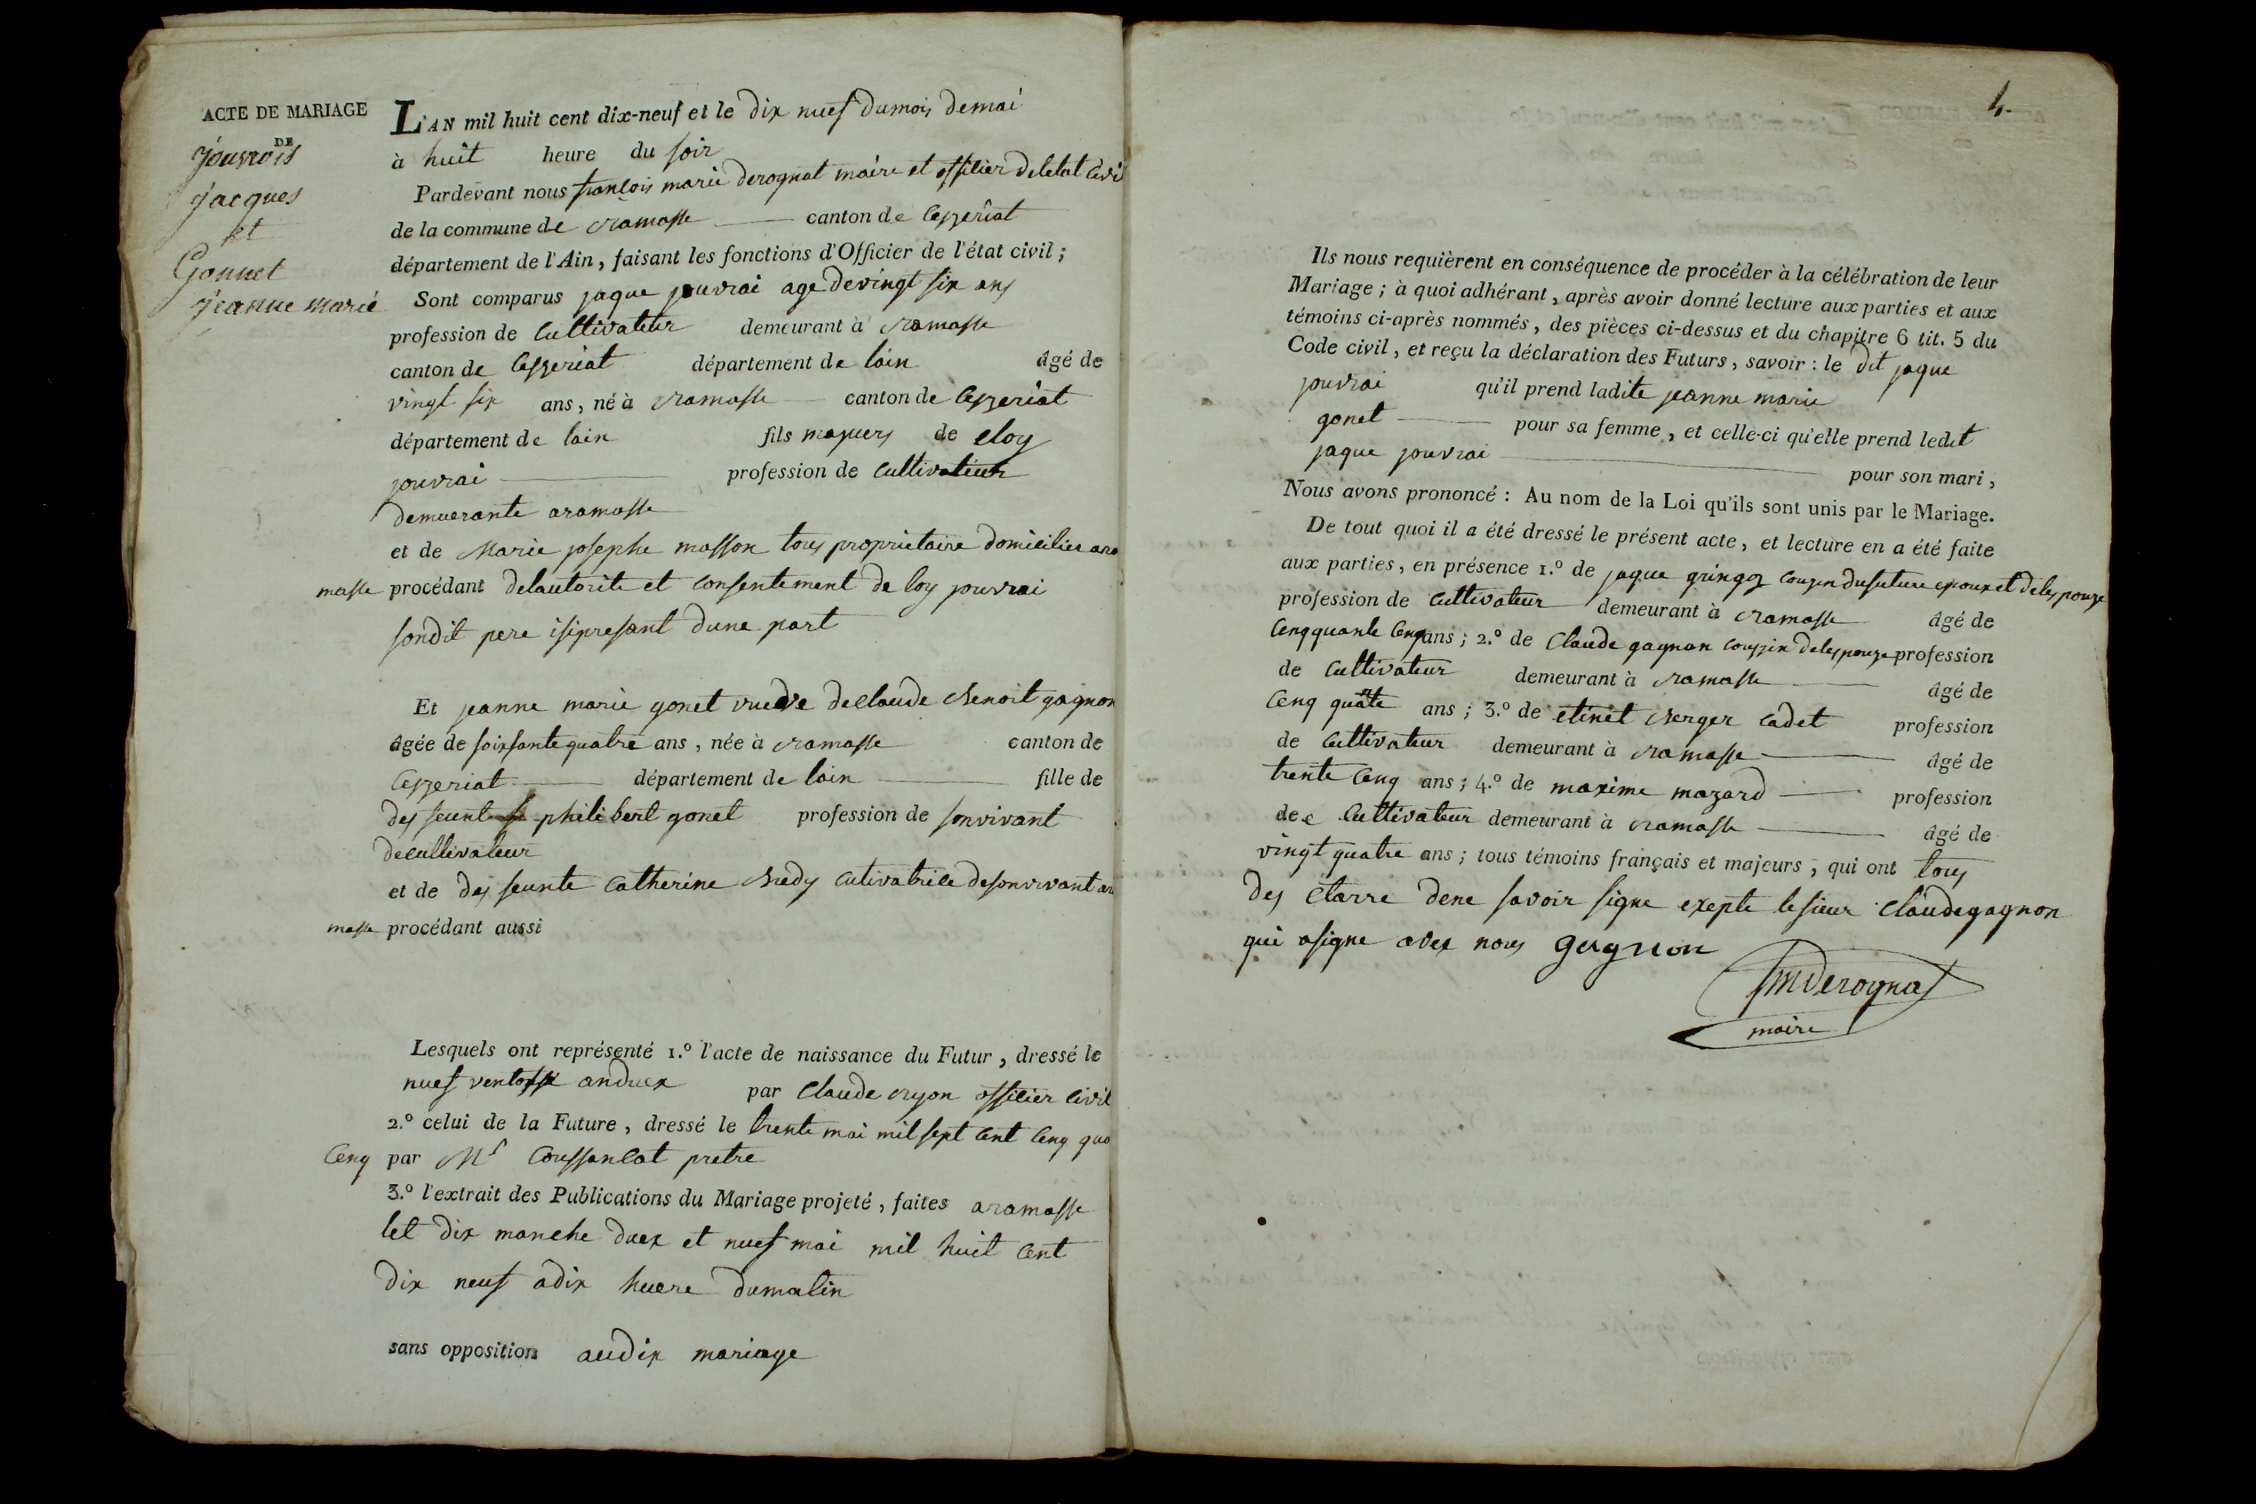 ACTE DE MARIAGE
DE
Jouvrois
Jacques
et
Gonnet
Jeanne marie
L'AN mil huit cent dix-neuf et le dix nuef du mois de mai
à huit heure du soir
Pardevant nous françois marie derognat maire et offilier deletat Civil
de la commune de ramasse canton de Ceyzeriat
département de l'Ain, faisant les fonctions d'Officier de l'état civil;
Sont comparus jaque jouvrai age de vingt six ans
profession de Cultivateur demeurant à ramasse
canton de Ceyzeriat département de lain âgé de
vingt six ans, né à ramasse canton de Ceyzeriat
département de lain fils majuers de eloy
jouvrai profession de cultivateur
demuerante aramasse
et de Marie josephe masson tous proprietaire domicilies ara
masse procédant delautorite et consentement de loy jouvrai
sondit pere isipresant dune part
Et jeanne marie gonet vuedve declaude Benoit gagnon
âgée de soixsante quatre ans, née à ramasse canton de
Ceyzeriat département de lain fille de
des feunt philibert gonet profession de sonvivant
decultivateur
et de des feunte Catherine Bredy cutivatrice desonvivant ara
masse procédant aussi
Lesquels ont représenté 1.º l'acte de naissance du Futur, dressé le
nuef ventosse anduex par Claude ryon offilier Civil
2.º celui de la Future, dressé le trente mai mil sept Cent Cenq qua
Cenq par Mr Coussanlat pretre
3.º l'extrait des Publications du Mariage projeté, faites aramasse
let dix manche duex et nuef mai mil huit Cent
dix neuf adix huere dumatin
sans opposition audix mariage
4.
Ils nous requièrent en conséquence de procéder à la célébration de leur
Mariage; à quoi adhérant, après avoir donné lecture aux parties et aux
témoins ci-après nommés, des pièces ci-dessus et du chapitre 6 tit. 5 du
Code civil, et reçu la déclaration des Futurs, savoir: le dit jaque
jouvrai qu'il prend ladite jeanne marie
gonet pour sa femme, et celle-ci qu'elle prend ledit
jaque jouvrai pour son mari,
Nous avons prononcé: Au nom de la Loi qu'ils sont unis par le Mariage.
De tout quoi il a été dressé le présent acte, et lecture en a été faite
aux parties, en présence 1.º de jaque gringoz couzen dufuture epoux et delespouze
profession de Cultivateur demeurant à ramasse âgé de
Cenqquante Cenq ans; 2.º de Claude gagnon couzzin delespouze profession
de Cultivateur demeurant à ramasse âgé de
Cenq quante ans; 3.º de etinet Berger Cadet profession
de Cultivateur demeurant à ramasse âgé de
trente Cenq ans; 4.º de maxime mazard profession
de e Cultivateur demeurant à ramasse âgé de
vingt quatre ans; tous témoins français et majeurs, qui ont tous
des Clarre dene savoir signe exepte lesieur Claudegagnon
qui asigne avex nous gagnon
fmderognat
maire